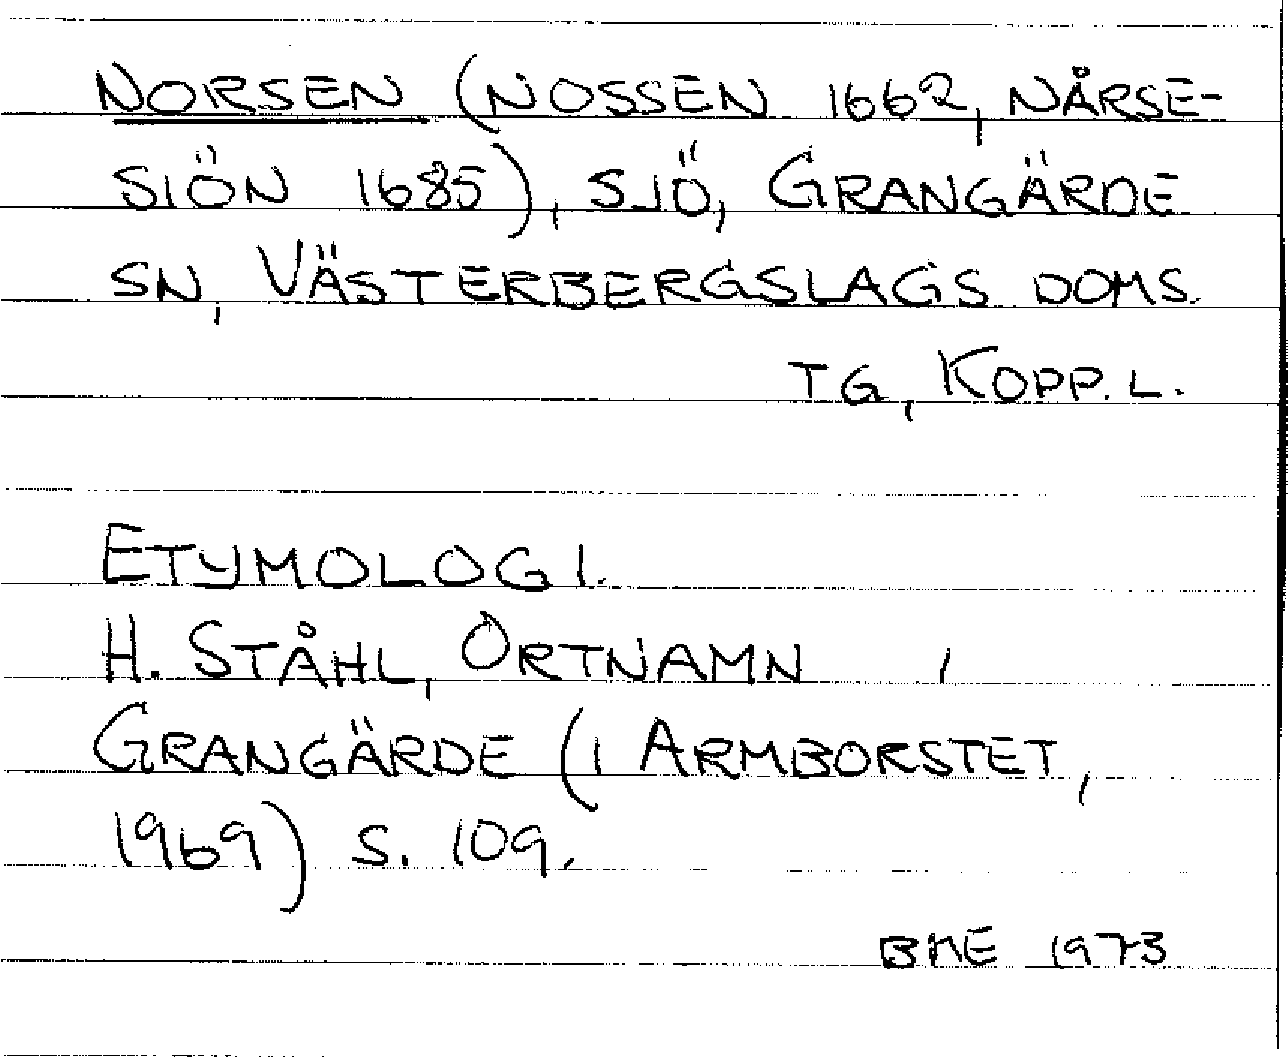 NORSEN (NOSSEN 1662, NÅRSE-
SIÖN 1685), SJÖ, GRANGÄRDE
SN, VÄSTERBERGSLAGS DOMS.
TG, KOPP. L.
ETYMOLOGI.
H. STÅHL, ORTNAMN I
GRANGÄRDE (I ARMBORSTET,
1969) S. 109.
1973